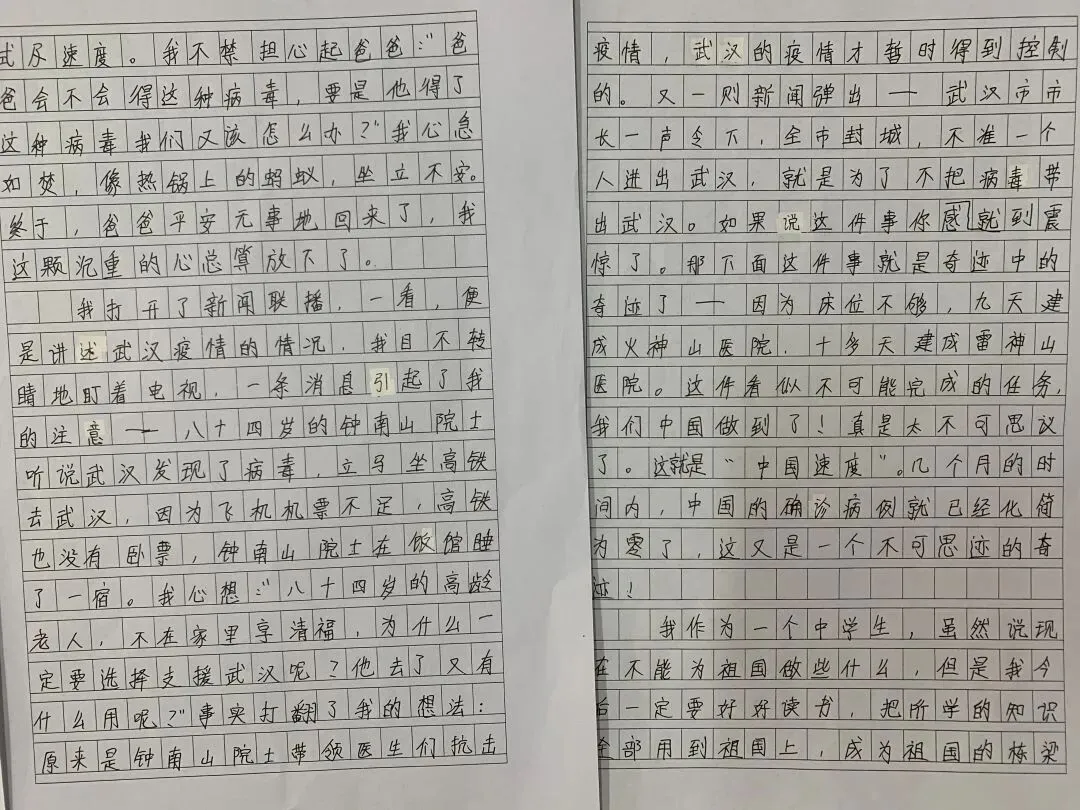 式尽速度。我不禁担心起爸爸:“爸
爸会不会得这种病毒，要是他得了
这种病毒我们又该怎么办?”我心急
如焚，像热锅上的蚂蚁，坐立不安。
终于，爸爸平安无事地回来了，我
这颗沉重的心总算放下了。
我打开了新闻联播，一看，便
是讲述武汉疫情的情况，我目不转
睛地盯着电视，一条消息引起了我
的注意——八十四岁的钟南山院士
听说武汉发现了病毒，立马坐高铁
去武汉，因为飞机机票不足，高铁
也没有卧票，钟南山院士在饭馆睡
了一宿。我心想:“八十四岁的高龄
老人，不在家里享清福，为什么一
定要选择支援武汉呢?他去了又有
什么用呢?”事实打翻了我的想法:
原来是钟南山院士带领医生们抗击
疫情，武汉的疫情才暂时得到控制
的。又一则新闻弹出——武汉市市
长一声令下，全市封城，不准一个
人进出武汉，就是为了不把病毒带
出武汉。如果说这件事你感就到震
惊了。那下面这件事就是奇迹中的
奇迹了——因为床位不够，九天建
成火神山医院，十多天建成雷神山
医院。这件看似不可能完成的任务,
我们中国做到了!真是太不可思议
了。这就是“中国速度”。几个月的时
间内，中国的确诊病例就已经化简
为零了，这又是一个不可思迹的奇
迹!
我作为一个中学生，虽然说现
在不能为祖国做些什么，但是我今
后一定要好好读书，把所学的知识
全部用到祖国上，成为祖国的栋梁